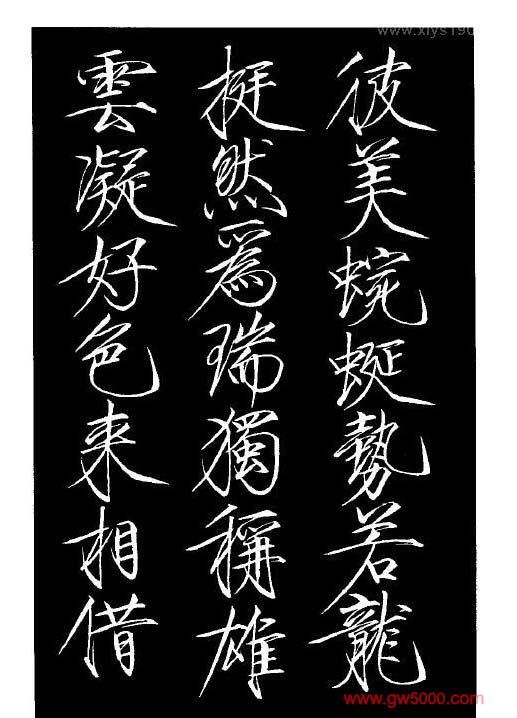 彼美蜿蜒勢若龍
挺然爲瑞獨稱雄
雲凝好色来相借
www.gw5000.com